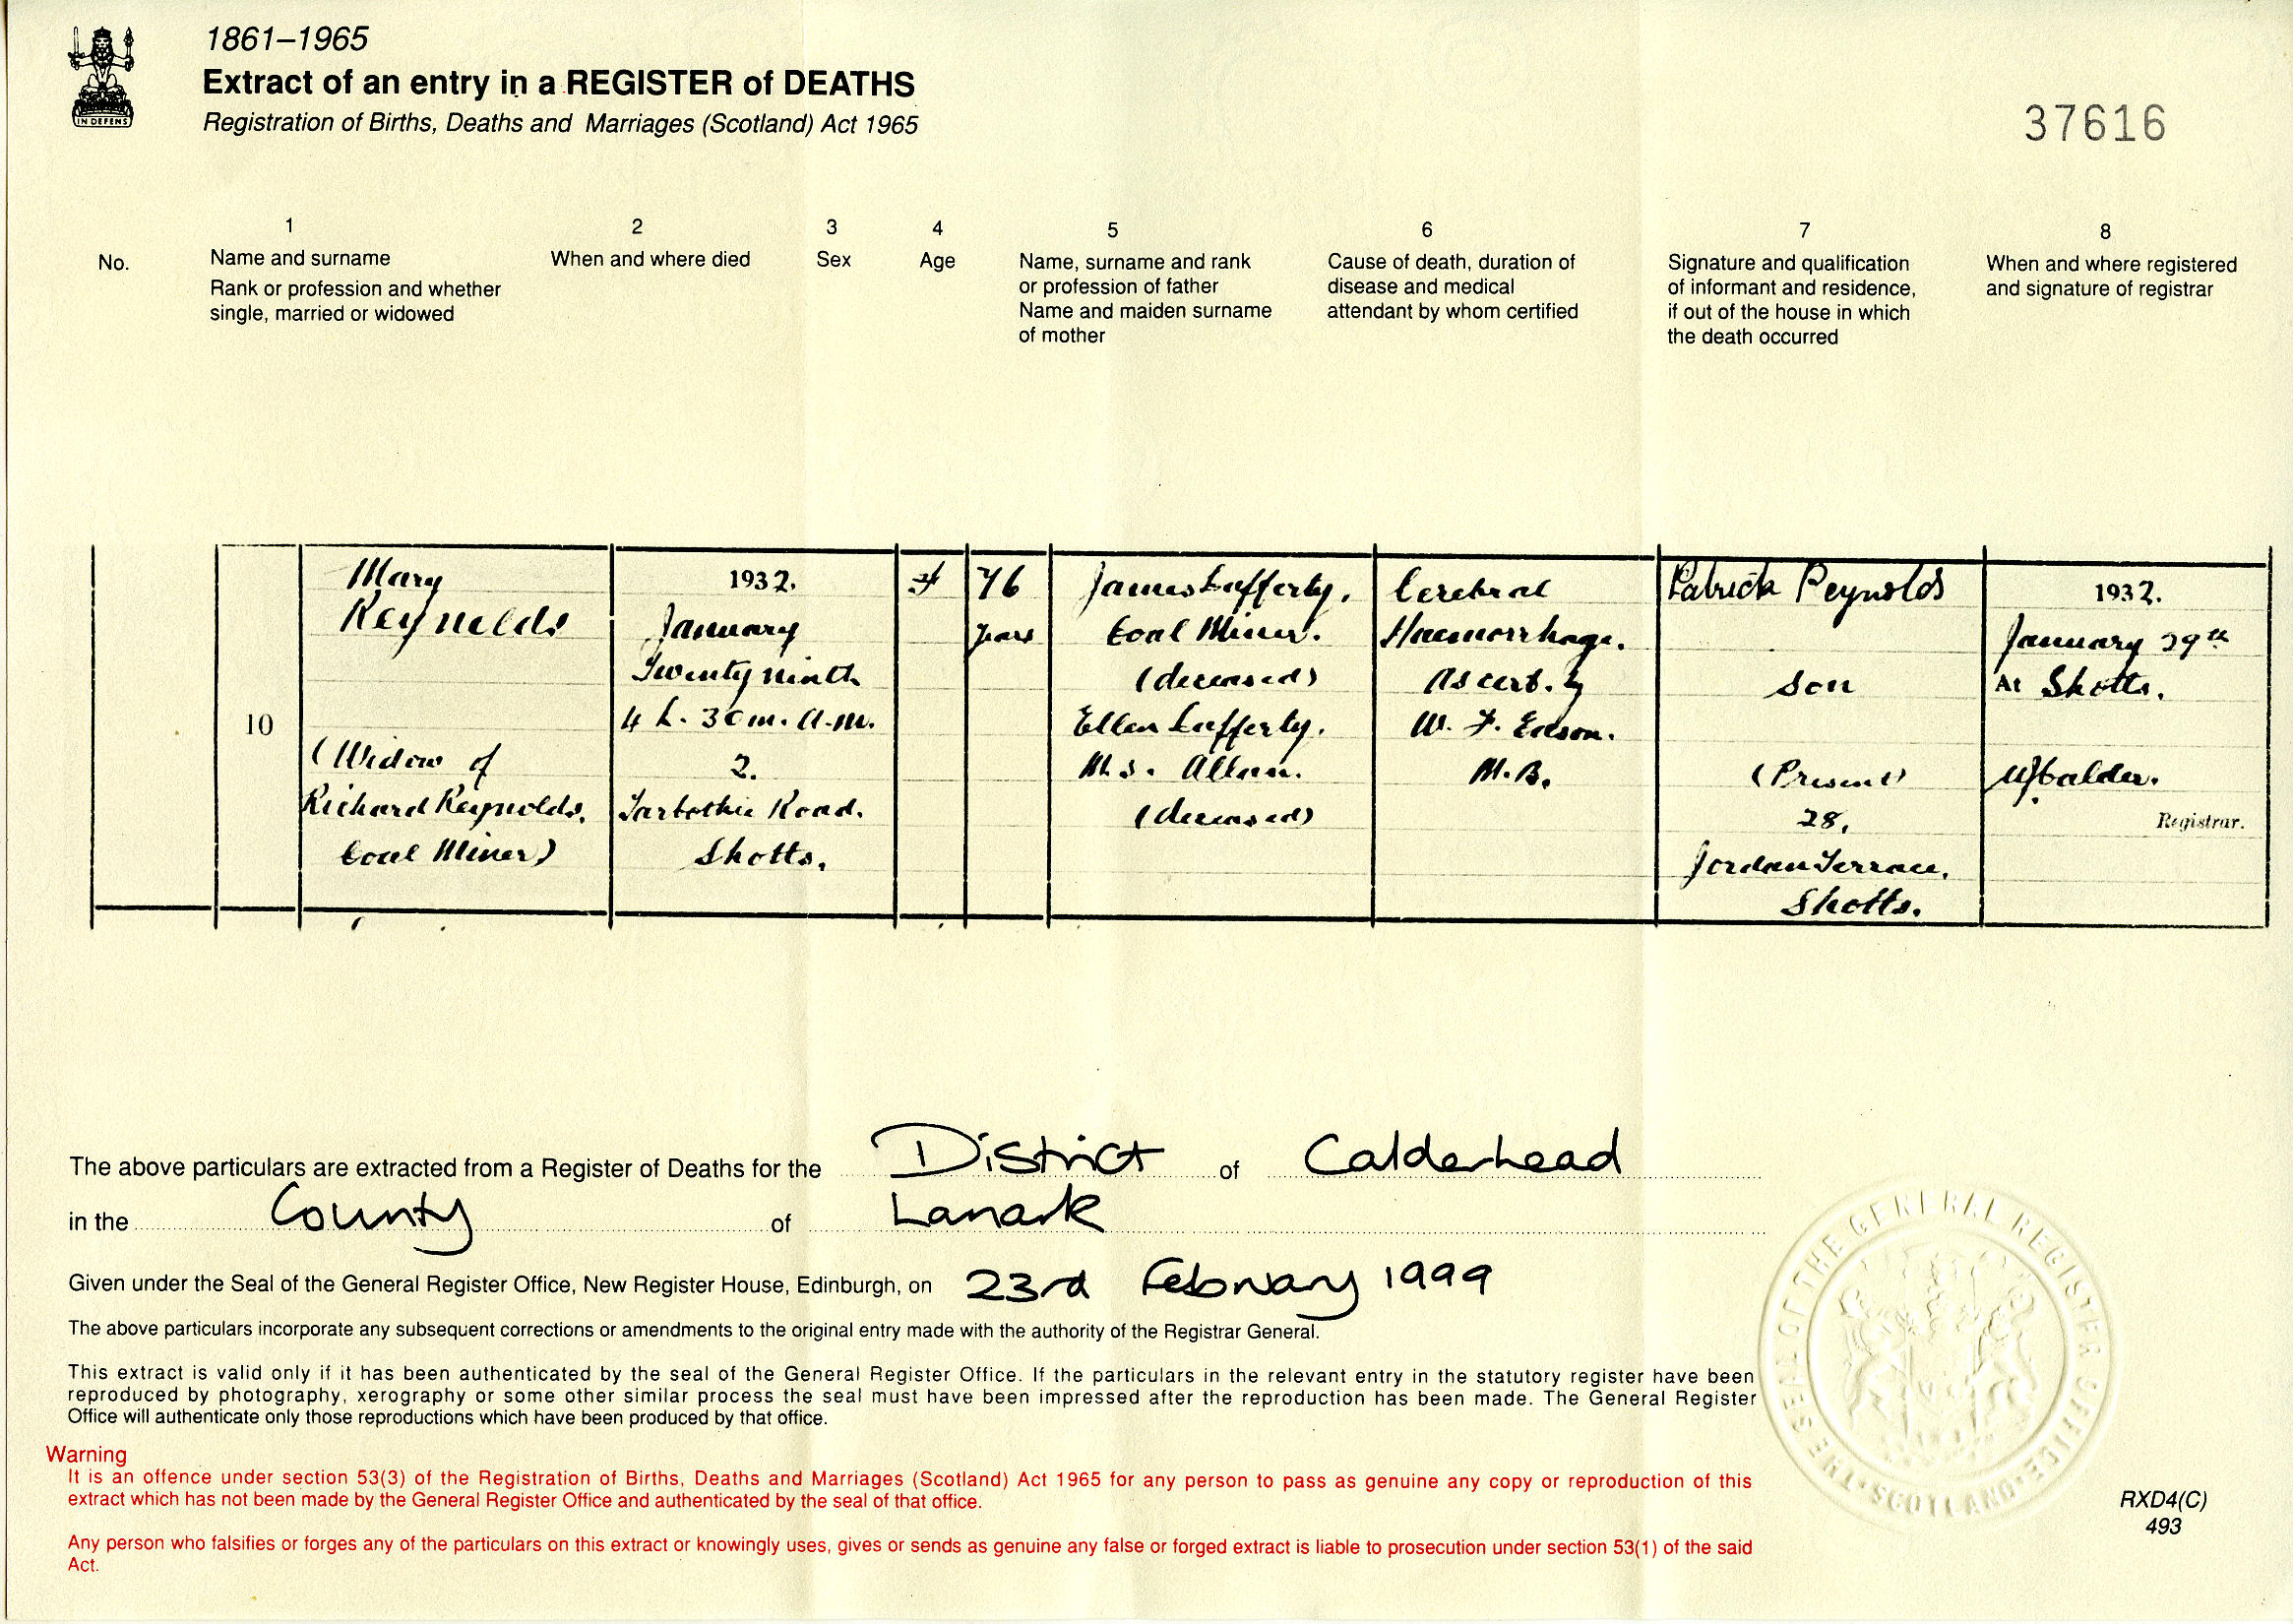 1861–1965
Extract of an entry in a REGISTER of DEATHS
Registration of Births, Deaths and Marriages (Scotland) Act 1965
IN DEFENS
37616
No.
1
Name and surname
Rank or profession and whether
single, married or widowed
2
When and where died
3
Sex
4
Age
5
Name, surname and rank
or profession of father
Name and maiden surname
of mother
6
Cause of death, duration of
disease and medical
attendant by whom certified
7
Signature and qualification
of informant and residence,
if out of the house in which
the death occurred
8
When and where registered
and signature of registrar
10
Mary
Reynolds
(Widow of
Richard Reynolds,
Coal Miner)
1932.
January
Twenty ninth
4 h. 30 m. A.M.
2.
Tarbothie Road.
Shotts.
F
76
years
James Lafferty,
Coal Miner.
(deceased)
Ellen Lafferty.
M.S. Allan.
(deceased)
Cerebral
Haemorrhage.
As cert. by
W. F.
M.B.
Patrick Reynolds
Son
(Present)
28,
Jordan Terrace,
Shotts.
1932.
January 29th
At Shotts.
Calder.
Registrar.
The above particulars are extracted from a Register of Deaths for the District of Calderhead
in the County of Lanark
Given under the Seal of the General Register Office, New Register House, Edinburgh, on 23rd February 1999
The above particulars incorporate any subsequent corrections or amendments to the original entry made with the authority of the Registrar General.
This extract is valid only if it has been authenticated by the seal of the General Register Office. If the particulars in the relevant entry in the statutory register have been
reproduced by photography, xerography or some other similar process the seal must have been impressed after the reproduction has been made. The General Register
Office will authenticate only those reproductions which have been produced by that office.
Warning
It is an offence under section 53(3) of the Registration of Births, Deaths and Marriages (Scotland) Act 1965 for any person to pass as genuine any copy or reproduction of this
extract which has not been made by the General Register Office and authenticated by the seal of that office.
Any person who falsifies or forges any of the particulars on this extract or knowingly uses, gives or sends as genuine any false or forged extract is liable to prosecution under section 53(1) of the said
Act.
THE SEAL OF THE GENERAL REGISTER OFFICE SCOTLAND
RXD4(C)
493